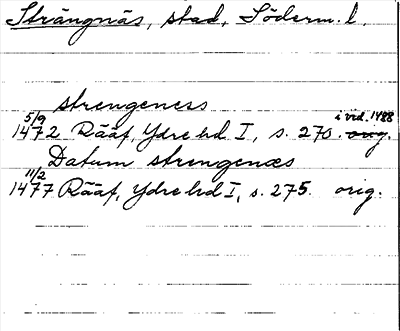 Strängnäs, stad, Söderm. l.
strengeness
5/9 i vid. 1488
1472 Rääf, Ydre hd I, s. 270. orig.
Datum strengenæs
11/2
1477 Rääf, Ydre hd I, s. 275. orig.